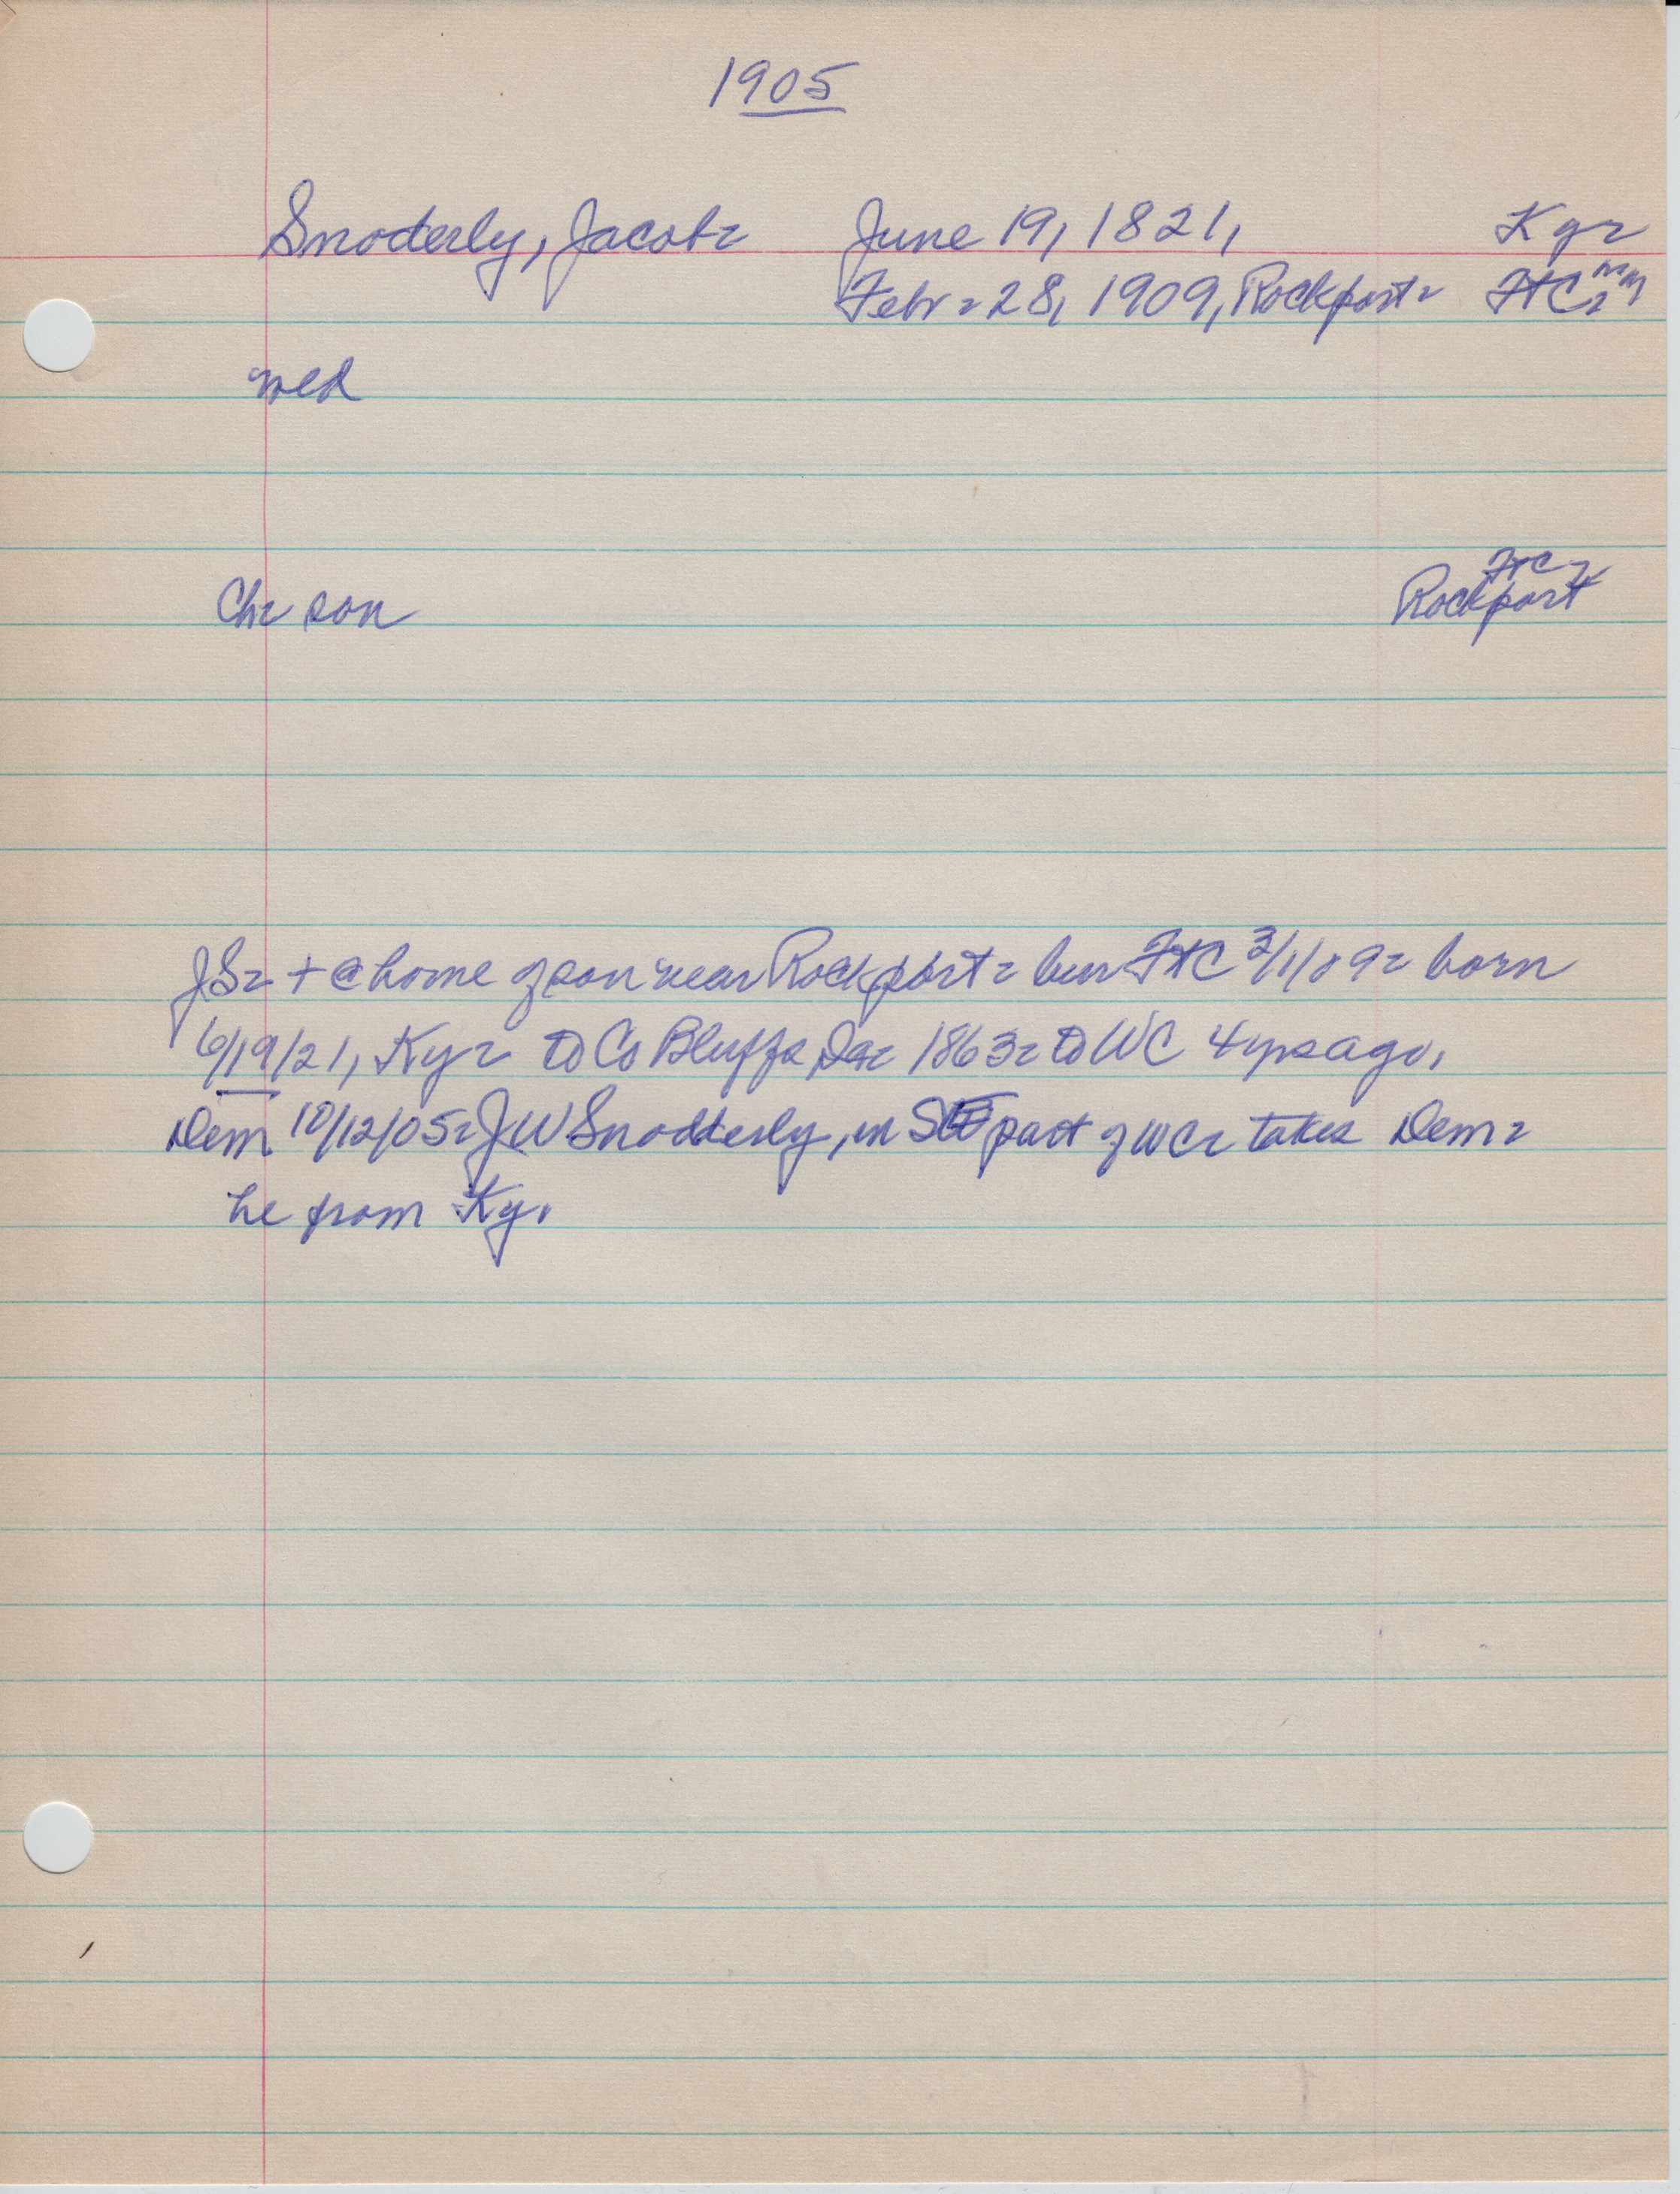 1905
Snoderly, Jacob - June 19, 1821, Ky -
Febr - 28, 1909, Rockport - FtC -
wed
Ch - son FtC -
Rockport
JS - + @ home of son near Rockport - bur FtC 3/1/09 - born
6/19/21, Ky - to Co Bluffs, Ia - 1863 - to WC 4 yrs ago.
Dem 10/12/05 - JW Snodderly, in part of WC - takes Dem -
he from Ky.